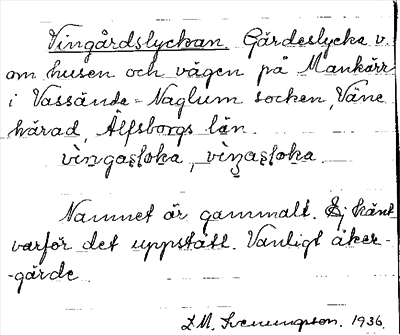 Vingårdslyckan Gärdeslycka v.
om husen och vägen på Mankärr
i Vassända-Naglum socken, Väne
härad, Älfsborgs län.
vìngasloka, vìŋasloka.
Namnet är gammalt. Ej känt
varför det uppstått. Vanligt åker-
-gärde
Z.M. Svenungson. 1936.